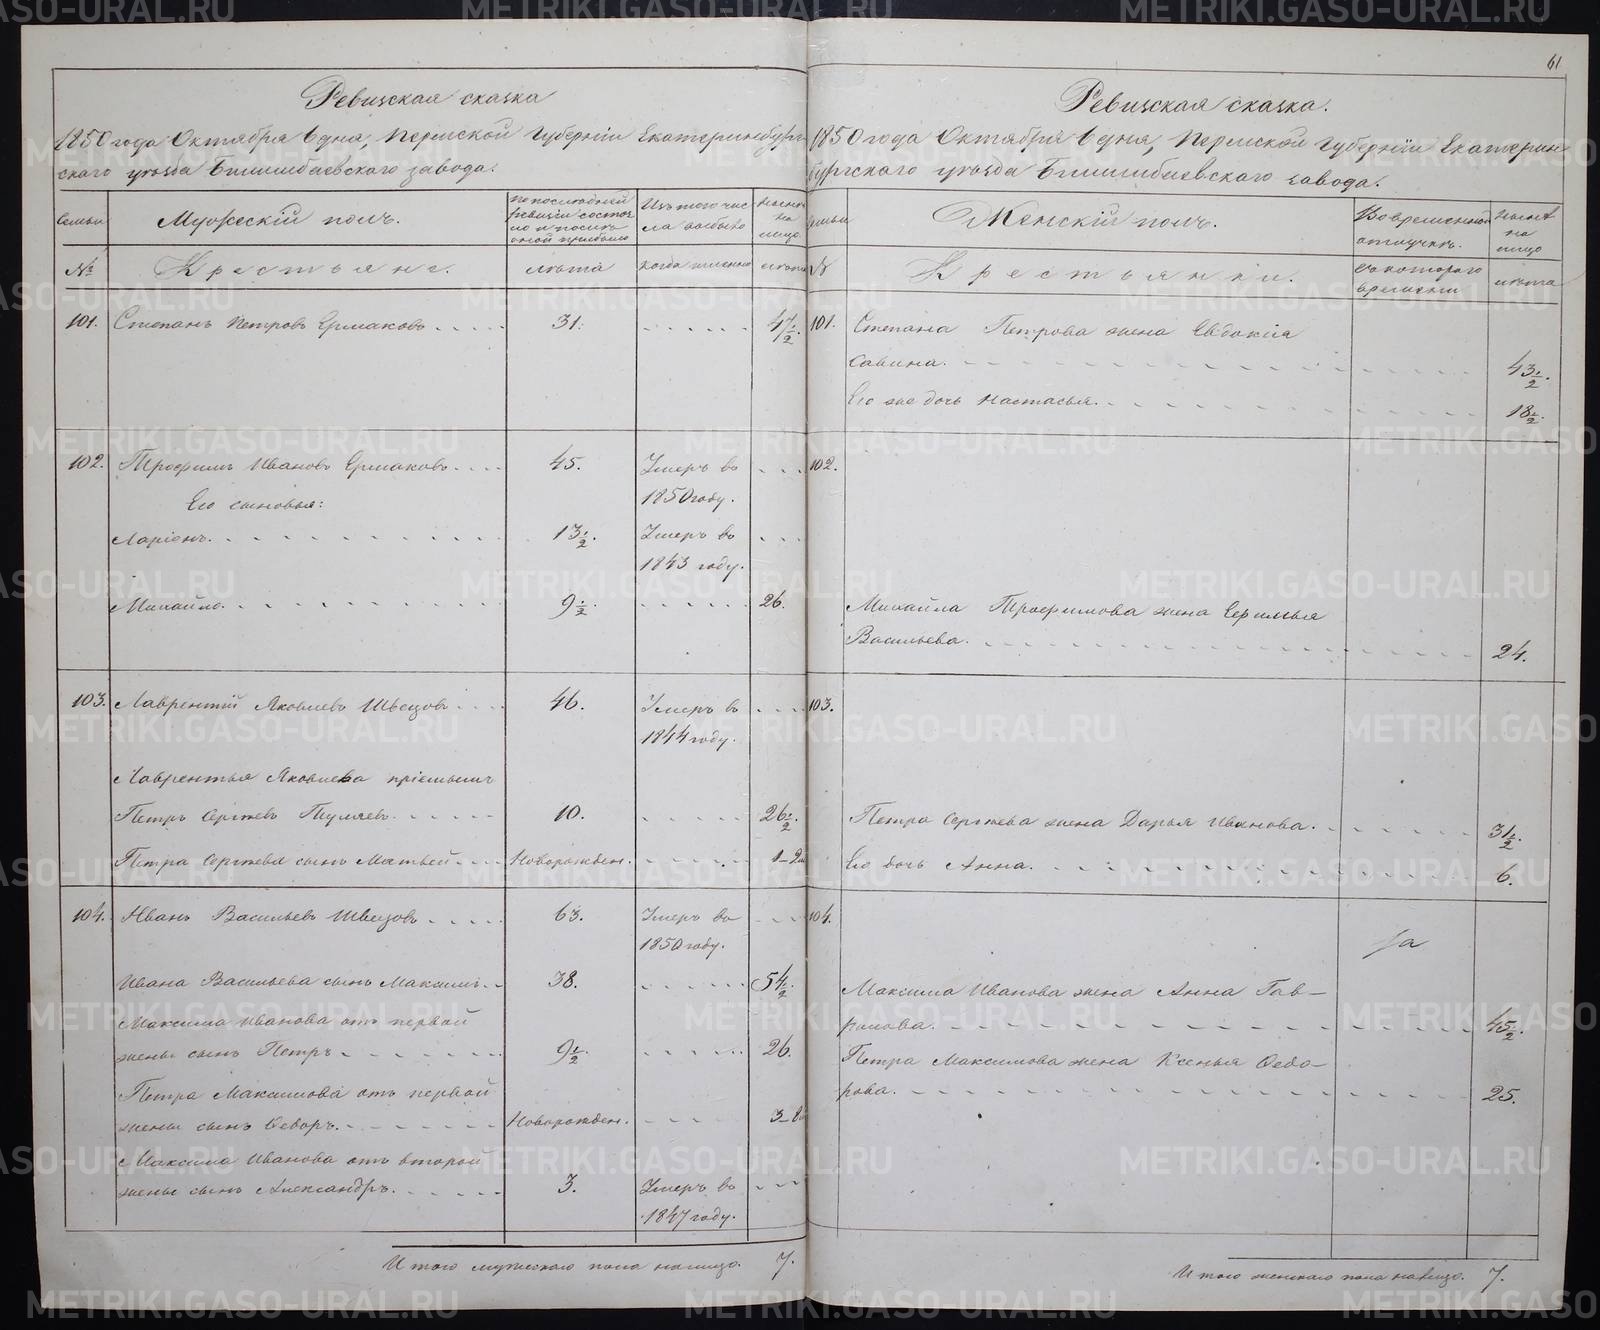 61
Ревизская сказка
1850 года Октября 6 дня, Пермской Губерніи Екатеринбург-
скаго уѣзда Билимбаевскаго завода.
Семьи
Мужескій полъ.
По последней ревизіи состояло и после оной прибыло
Изъ того числа выбыло
Ныне на лицо
№
Крестьяне.
лѣта
когда именно
лѣта
101. Степанъ Петровъ Ермаковъ 31. 47 1/2.
102. Трофимъ Ивановъ Ермаковъ. 45. Умеръ въ
1850 году.
Его сыновья:
Ларіонъ. 13 1/2. Умеръ въ
1843 году.
Михайло. 9 1/2. 26.
103. Лаврентій Яковлевъ Швецовъ 46. Умеръ въ
1844 году.
Лаврентья Яковлева пріемышъ
Петръ Сергѣевъ 10. 26 1/2.
Петра Сергѣева сынъ Матвей Новорожден. 1-2
104. Иванъ Васильевъ Швецовъ 63. Умеръ въ
1850 году.
Ивана Васильева сынъ Максимъ 38. 54 1/2.
Максима Иванова отъ первой
жены сынъ Петръ 9 1/2. 26.
Петра Максимова отъ первой
жены сынъ Ѳедоръ. Новорожден. 3-8
Максима Иванова отъ второй
жены сынъ Александръ. 3. Умеръ въ
1847 году.
Итого мужескаго пола налицо. 7.
Ревизская сказка.
1850 года Октября 6 дня, Пермской Губерніи Екатерин-
бургскаго уѣзда Билимбаевскаго завода.
Семьи
Женскій полъ.
Во временной отлучкѣ.
Нынѣ на лицо
№
Крестьянки.
съ котораго времени
лѣта
101. Степана Петрова жена Евдокія
Савина. 43 1/2.
Его же дочь Настасья. 18 1/2.
102.
Михайла Трофимова жена Ефимья
Васильева. 24.
103.
Петра Сергѣева жена Дарья Иванова. 31 1/2.
Его дочь Анна. 6.
104.
Максима Иванова жена Анна Гав-
рилова. 45 1/2.
Петра Максимова жена Ксенья Ѳедо-
рова. 25.
Итого женскаго пола налицо. 7.
METRIKI.GASO-URAL.RU